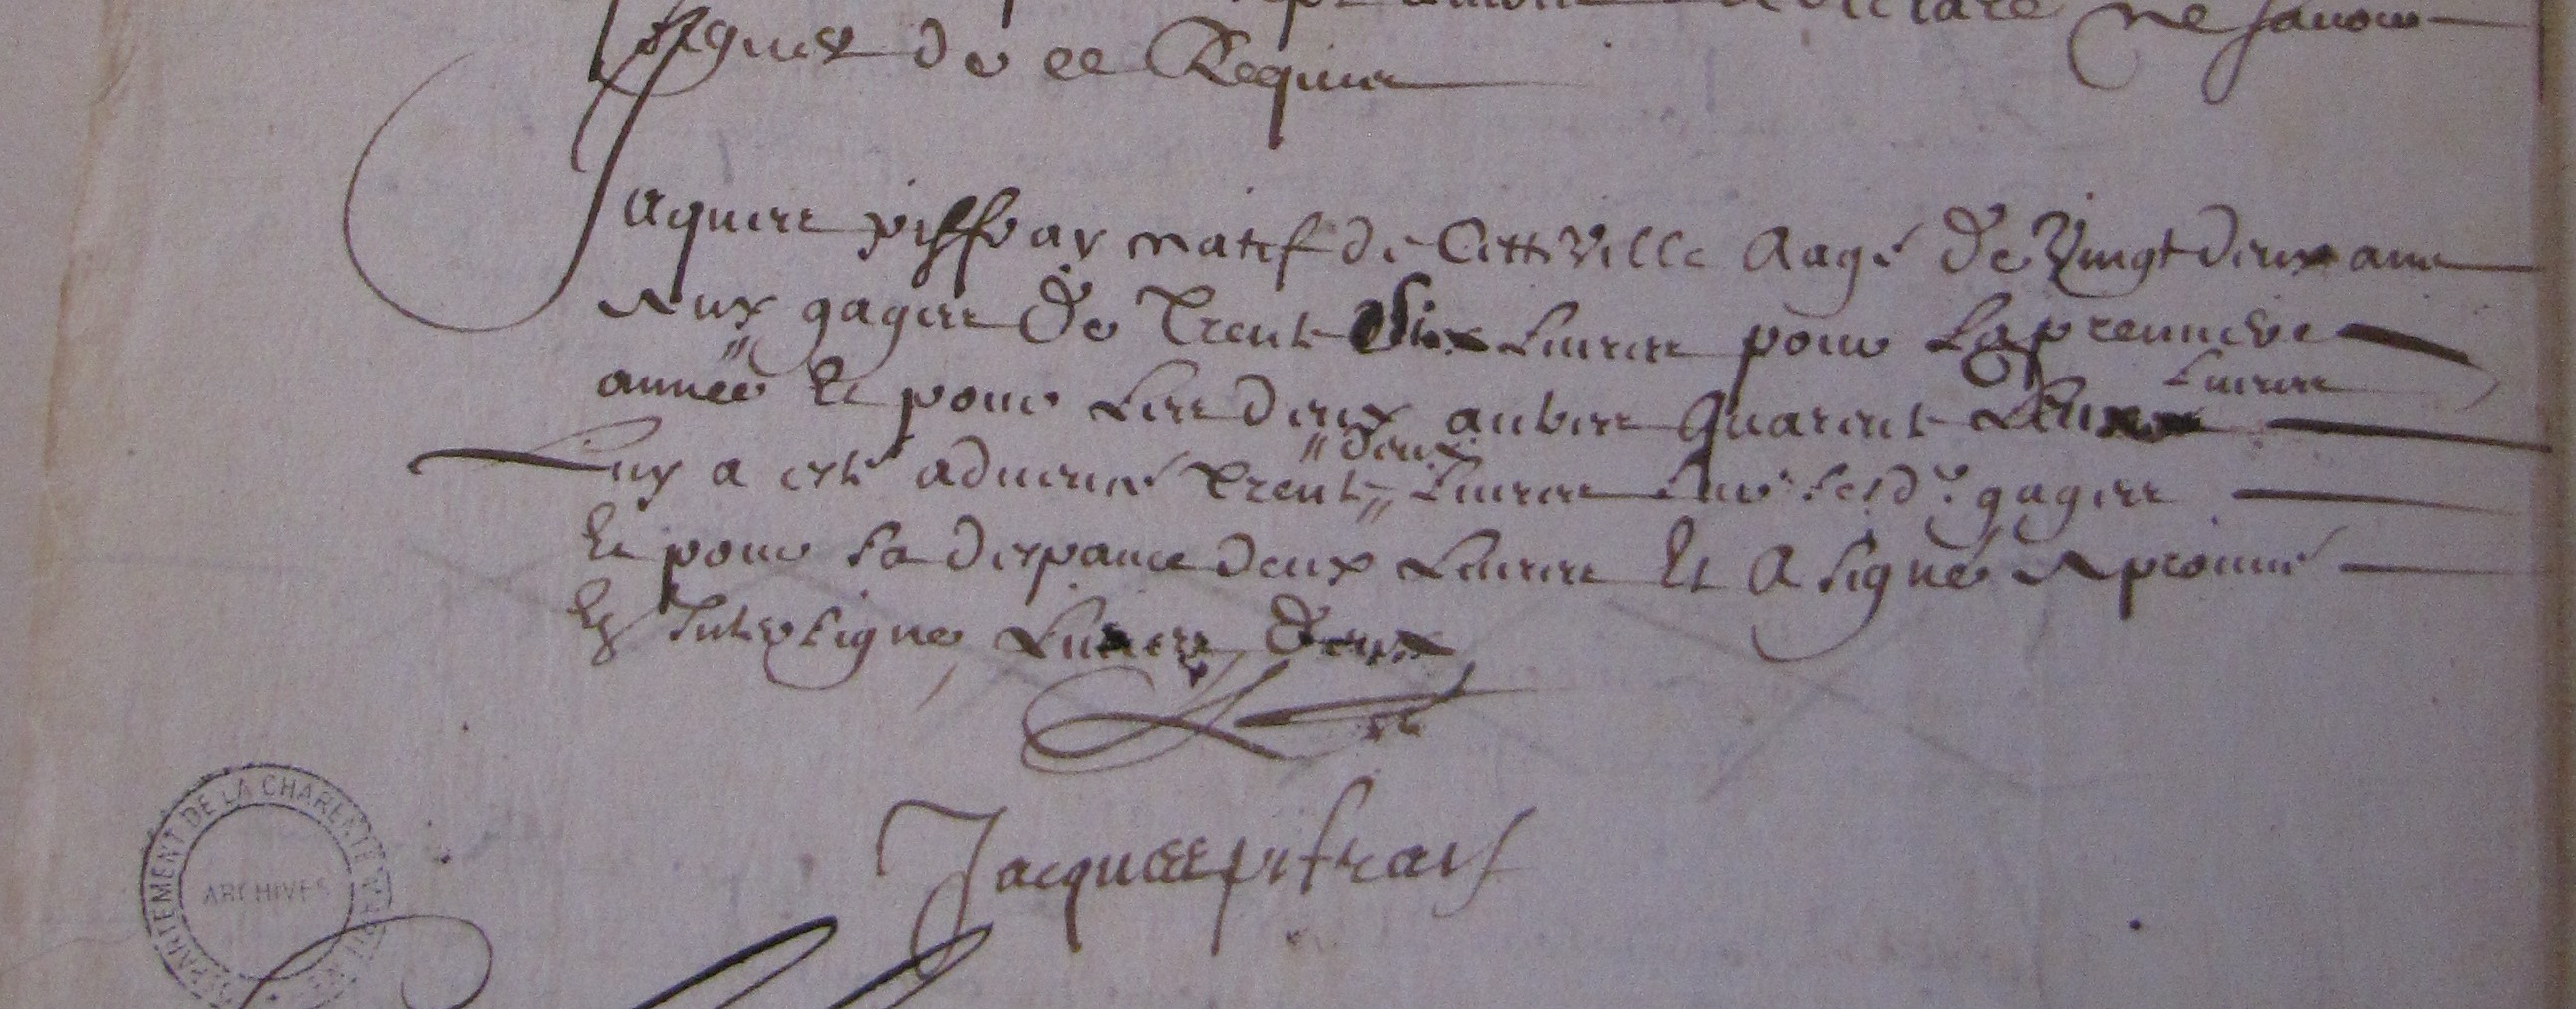 declare ne savoir
signer de ce Requis
Jaques pissray natif de Cette Ville aagé de Vingt deux ans
Aux gages de Trente Six Livres pour La premiere
année Et pour Les deux autres Quarente Livres
Luy a esté advencé Trente deux Livres Sur sesd. gages
Et pour sa despance deux Livres Et A signé Aprouvé
En Interligne Livres, Deux
Jacques pifrais
DEPARTEMENT DE LA CHARENTE
ARCHIVES